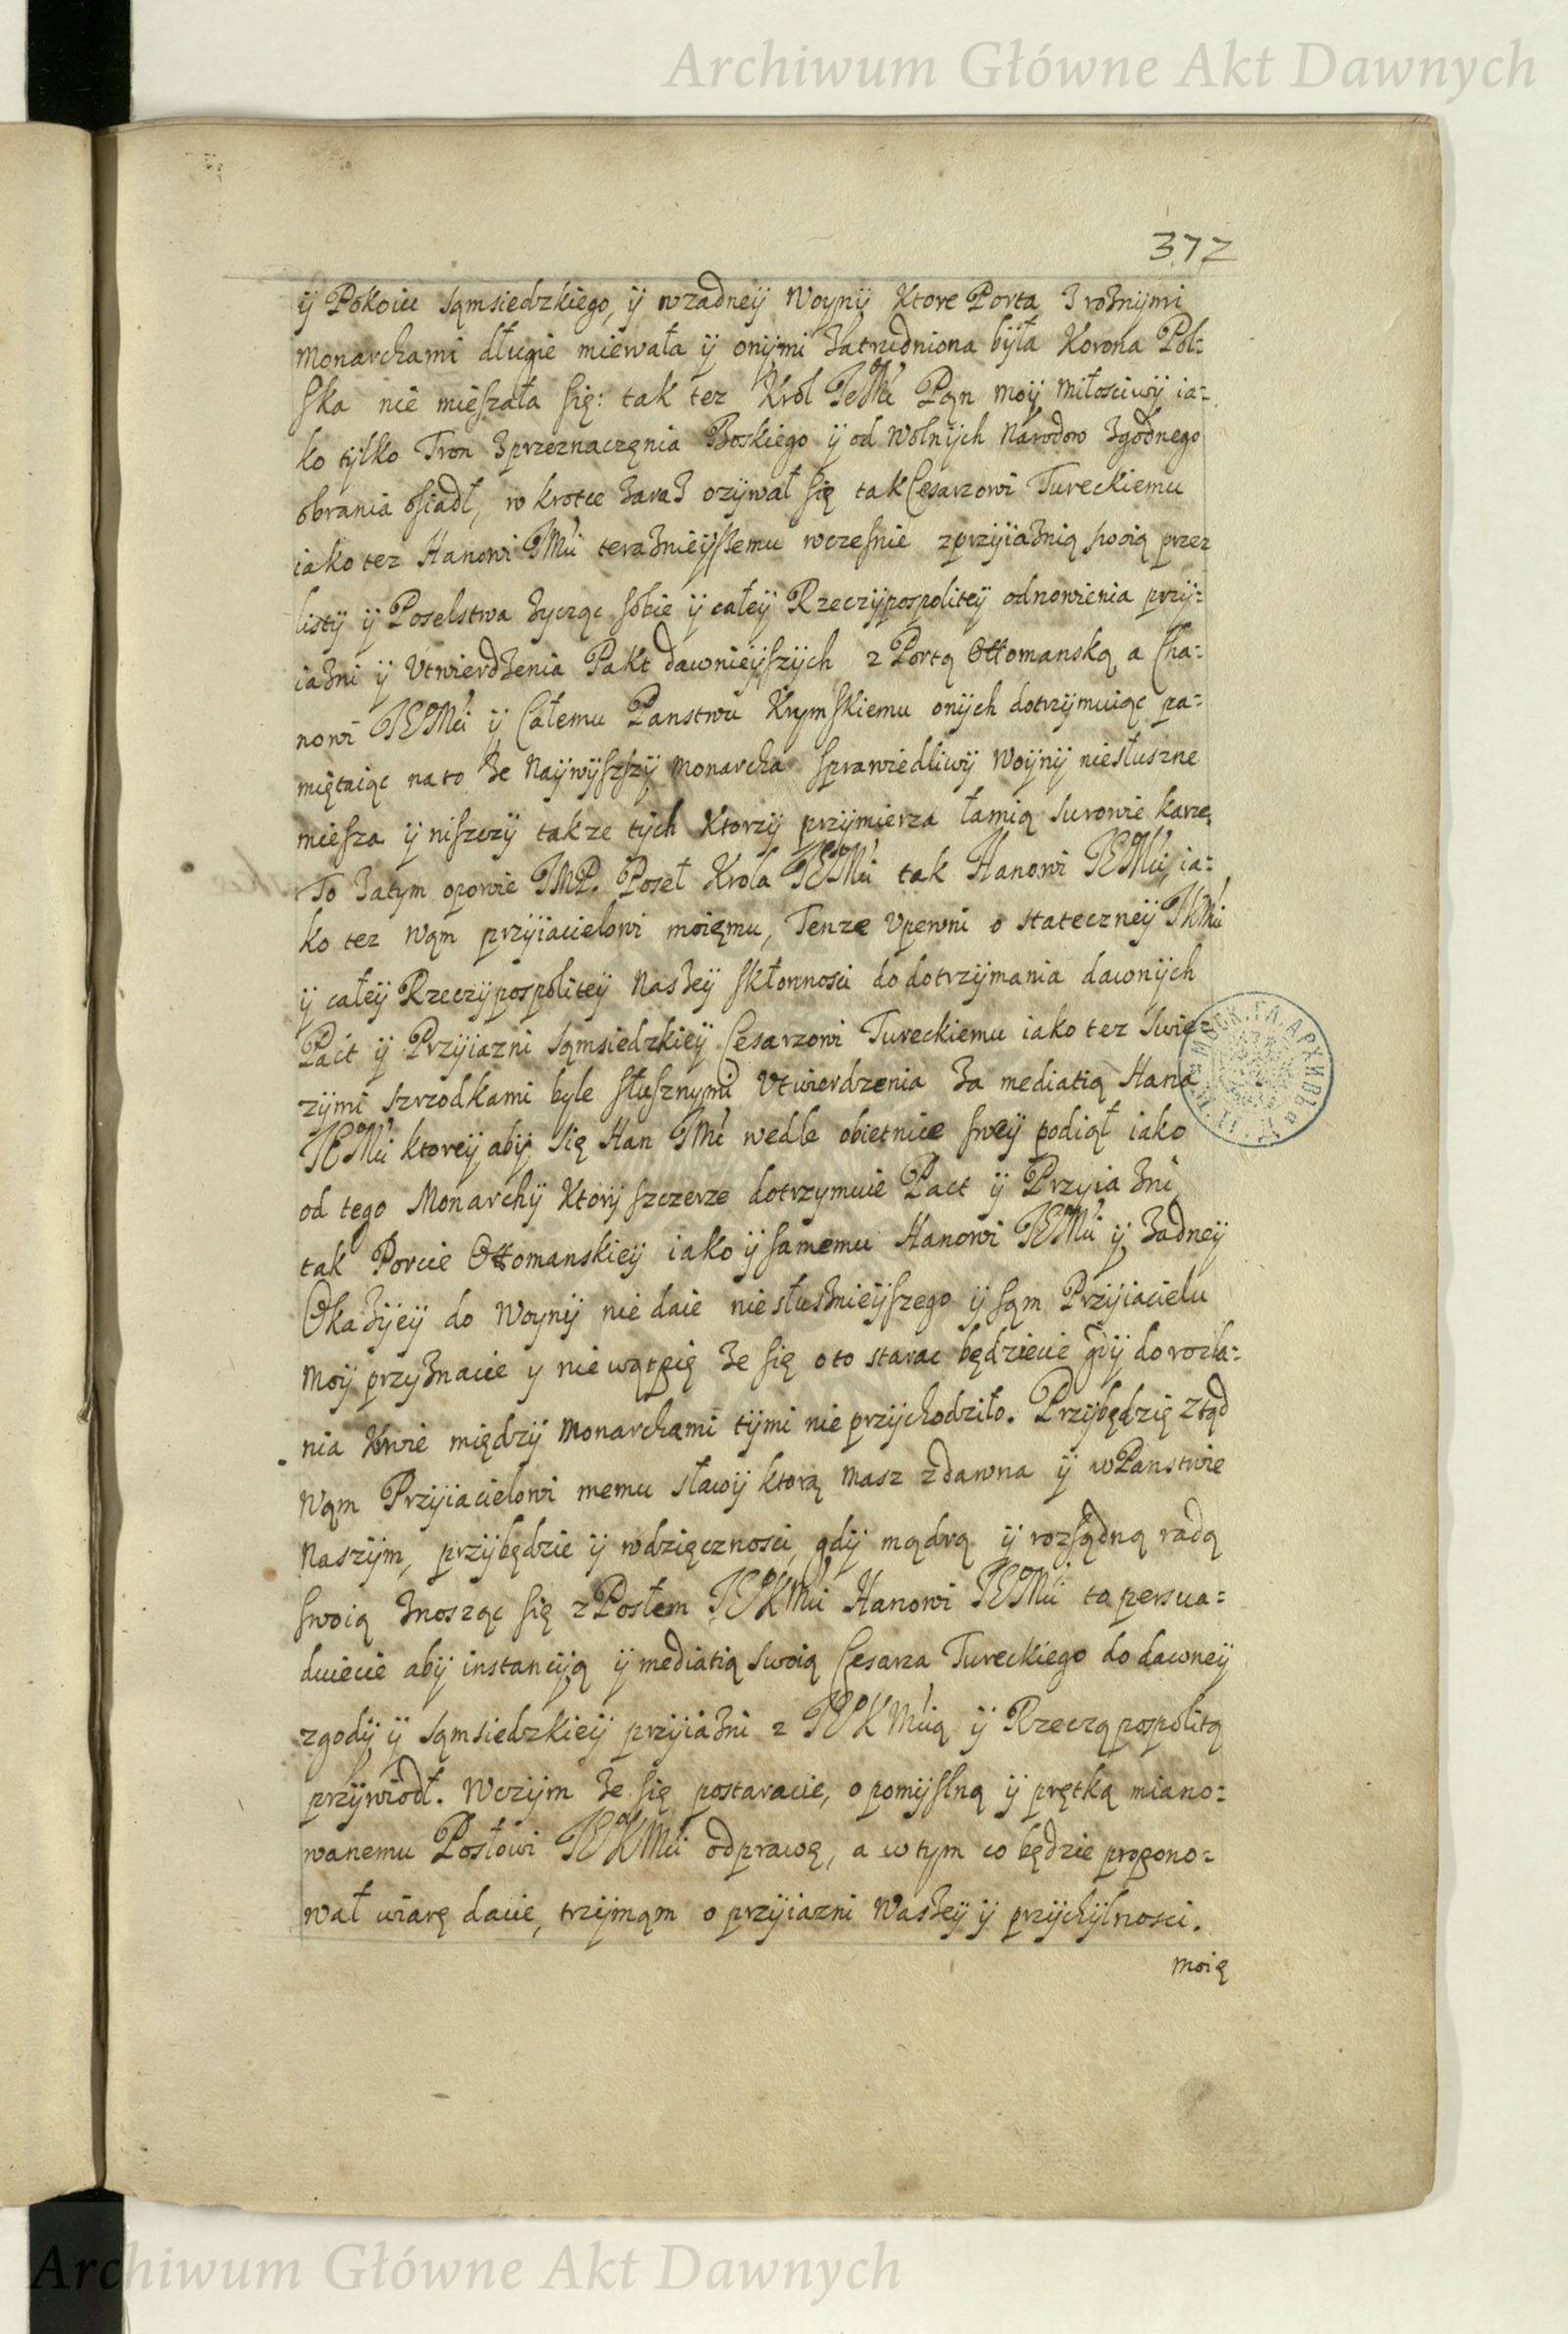 Archiwum Główne Akt Dawnych
372
ÿ Pokoiu sąmsiedzkiego, ÿ wzadneÿ Woÿnÿ Ktore Porta Z roznÿmi
Monarchami długie miewała ÿ onÿmi Zatrudniona bÿła Korona Pol:
ska nie mieszała się: tak tez Krol JeMć Pąn moÿ Miłosciwÿ ia:
ko tÿlko Tron Zprzeznaczęnia Boskiego ÿ od Wolnÿch Narodow Zgodnego
obrania osiadł, w krotce ZaraZ ozÿwał się tak Cesarzowi Tureckiemu
iako tez Hanowi JMći teraZnieÿszemu wczesnie zprzÿiaZnią swoią przez
listÿ ÿ Poselstwa Zycząc sobie ÿ całeÿ Rzeczÿpospoliteÿ odnowienia przÿ:
iaZni ÿ UtwierdZenia Pakt dawnieÿszÿch z Portą Ottomanską a Cha:
nowi JEMći ÿ Całemu Panstwu Krymskiemu onÿch dotrzÿmuiąc pa:
miętaiąc na to Ze Naÿwÿszszÿ Monarcha Sprawiedliwÿ Woÿnÿ niesłuszne
miesza ÿ niszczÿ takze tÿch Ktorzÿ przÿmierza łamią surowie karze,
To Zatym opowie JMP. Poseł Krola JEMći tak Hanowi JEMći, ia:
ko tez Wąm przÿiacielowi moięmu, Tenze Upewni o stateczneÿ JKMći
ÿ całeÿ Rzeczÿpospoliteÿ NasZeÿ skłonnosci do dotrzÿmania dawnÿch
Pact ÿ Przÿiazni sąmsiedzkieÿ Cesarzowi Tureckiemu iako tez swie:
zÿmi szrzodkami byle słusznymi Utwierdzenia Za mediatią Hana
JEMći ktoreÿ abÿ się Han JMć wedle obietnice sweÿ podiął iako
od tego Monarchÿ Ktorÿ szczerze dotrzymuie Pact ÿ PrzyiaZni
tak Porcie Ottomanskieÿ iako ÿ samemu Hanowi JEMći ÿ Zadneÿ
OkaZÿeÿ do Woynÿ nie daie niesłuSznieÿszego ÿ sąm Przÿiacielu
Moÿ przyZnacie y nie wątpię Ze się o to starac będziecie gdÿ do rozla:
nia Krwie międzÿ Monarchami tÿmi nie przÿchodziło. Przÿbędzię ztąd
Wąm Przÿiacielowi memu sławÿ ktorą Masz zdawna ÿ wPanstwie
Naszÿm, przÿbędzie ÿ wdzięcznosci, gdÿ mądrą ÿ rozsądną radą
swoią Znosząc się z Posłem JEKMći Hanowi JEMći to persua:
duiecie abÿ instancÿą ÿ mediatią swoią Cesarza Tureckiego do dawneÿ
zgodÿ ÿ sąmsiedzkieÿ przÿiaZni z JEKMcią ÿ Rzecząpospolitą
przÿwiodł. Wczÿm Ze się postaracie, o pomÿslną ÿ prętką miano:
wanemu Posłowi JEKMći odprawę, a w tym co będzie propono:
wał wiarę dacie, trzÿmąm o przÿiazni WasZeÿ ÿ przÿchÿlnosci.
moię
Archiwum Główne Akt Dawnych